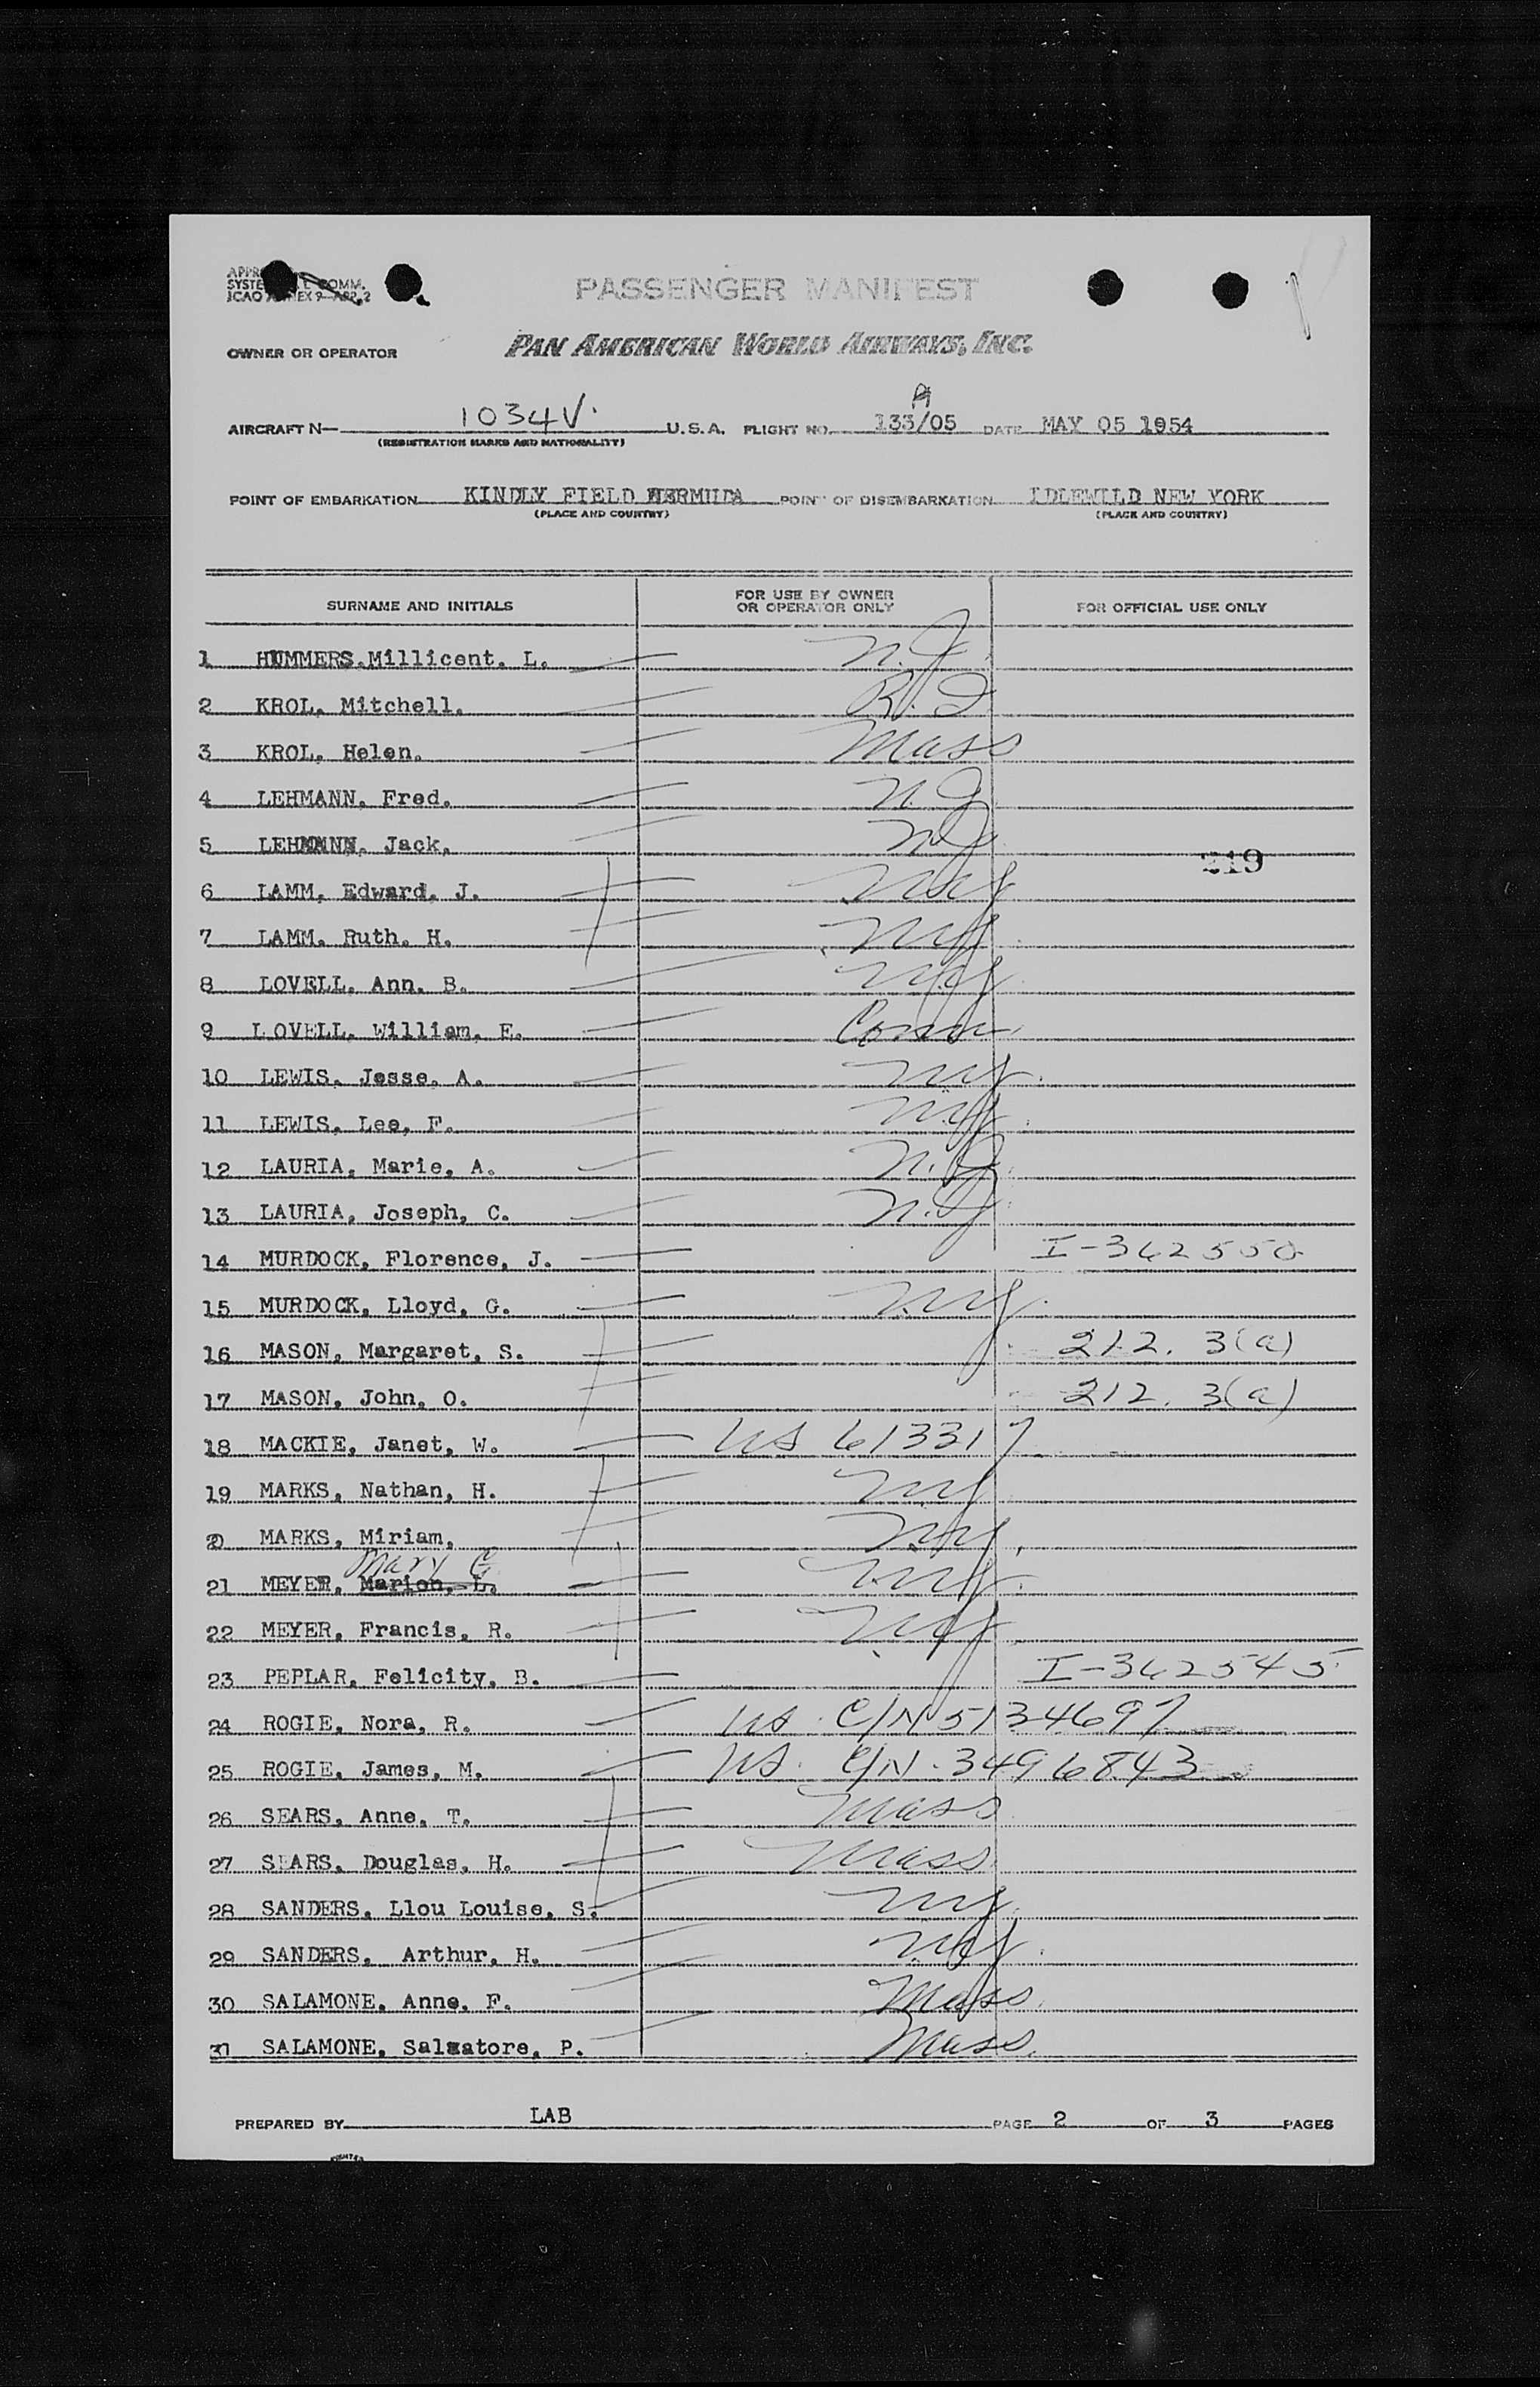 PASSENGER MANIFEST
OWNER OR OPERATOR PAN AMERICAN WORLD AIRWAYS, INC.
A
AIRCRAFT N— 1034V. U.S.A. FLIGHT NO. 133/05 DATE MAY 05 1954
(REGISTRATION MARKS AND NATIONALITY)
POINT OF EMBARKATION KINDLY FIELD BERMUDA POINT OF DISEMBARKATION IDLEWILD NEW YORK
(PLACE AND COUNTRY) (PLACE AND COUNTRY)
SURNAME AND INITIALS FOR USE BY OWNER OR OPERATOR ONLY FOR OFFICIAL USE ONLY
1 HUMMERS.Millicent. L. N.J.
2 KROL. Mitchell. R.I
3 KROL, Helen. Mass
4 LEHMANN, Fred. N.J
5 LEHMANN. Jack. N.J
219
6 LAMM, Edward. J. N.Y
7 LAMM. Ruth. H. N.Y
8 LOVELL. Ann. B. N.Y
9 LOVELL. William. E. Conn.
10 LEWIS. Jesse. A. N.Y.
11 LEWIS. Lee, F. N.Y.
12 LAURIA, Marie, A. N.J.
13 LAURIA, Joseph, C. N.J
14 MURDOCK, Florence, J. I-362550
15 MURDOCK, Lloyd, G. N.Y.
16 MASON, Margaret, S. 212. 3(a)
17 MASON, John, O. 212. 3(a)
18 MACKIE, Janet, W. US 613317
19 MARKS, Nathan, H. N.Y
20 MARKS, Miriam, N.Y.
Mary C
21 MEYER, Marion, L. N.Y.
22 MEYER, Francis, R. N.Y
23 PEPLAR, Felicity, B. I-362545
24 ROGIE, Nora, R. US. C/N 5134697
25 ROGIE, James, M. US. C/N. 3496843
26 SEARS, Anne, T. Mass
27 SEARS, Douglas, H. Mass
28 SANDERS, Llou Louise, S. N.Y.
29 SANDERS, Arthur, H. N.Y.
30 SALAMONE, Anne, F. Mass.
31 SALAMONE, Salvatore, P. Mass.
PREPARED BY LAB PAGE 2 OF 3 PAGES